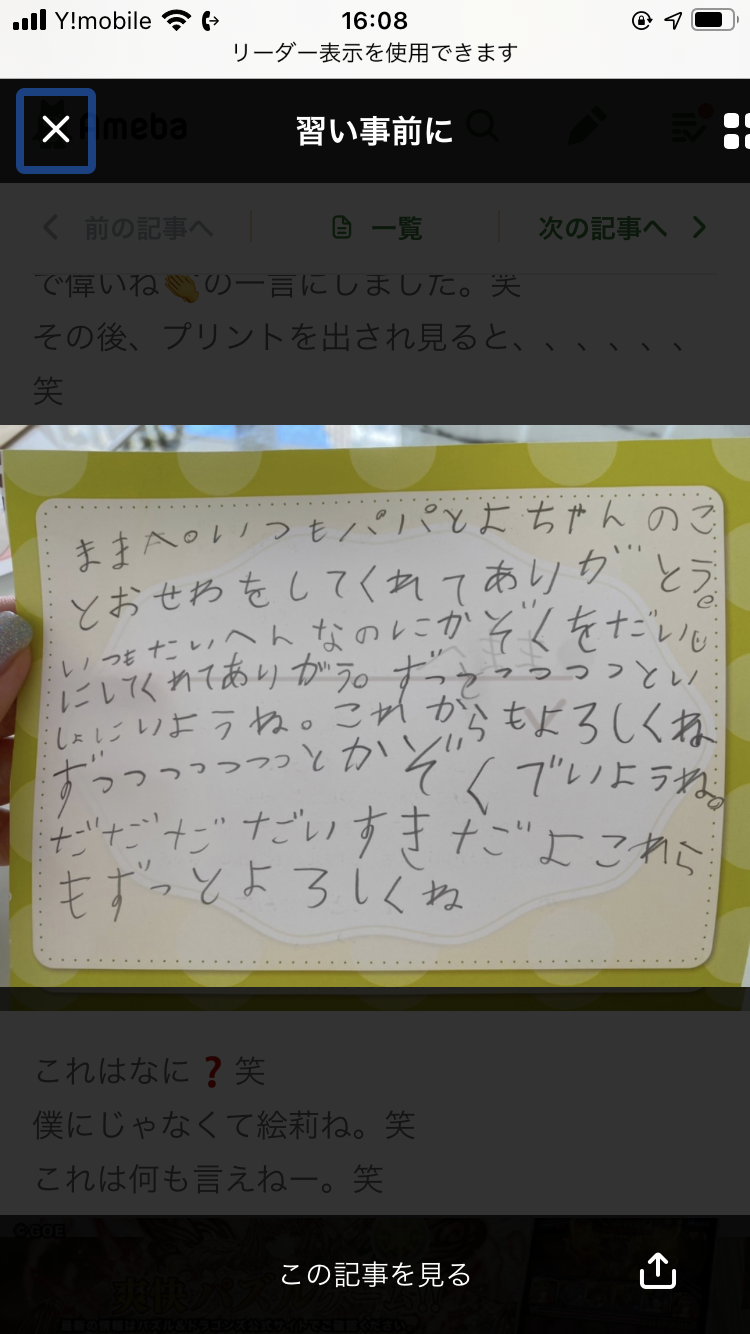 Y!mobile 16:08
リーダー表示を使用できます
Ameba
習い事前に
前の記事へ 一覧 次の記事へ
で偉いね👏の一言にしました。笑
その後、プリントを出され見ると、、、、、、
笑
ままへ。いつもパパとよちゃんのこ
とおせわをしてくれてありがとう。
いつもたいへんなのにかぞくをだいじ
にしてくれてありがう。ずっとっっっっっとい
しょにいようね。これからもよろしくね
ずっっっっっっっとかぞくでいようね。
だだだだいすきだよこれら
もずっとよろしくね
これはなに❓笑
僕にじゃなくて絵莉ね。笑
これは何も言えねー。笑
©GOE
この記事を見る